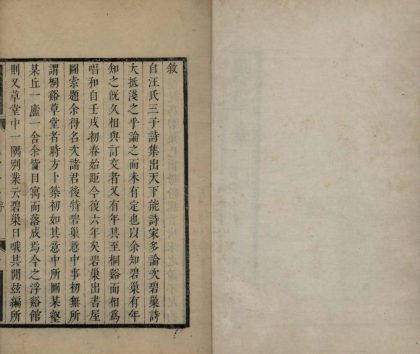 敘
自汪氏三子詩集出天下能詩家多論次碧巢詩
大抵淺之乎論之而未有定也以余知碧巢有年
知之既久相與訂交者又有年其至桐谿而相爲
唱和自壬戌初春始距今後六年矣碧巢出書屋
圖索題余得名次諸君後特碧巢意中事初無所
謂桐谿草堂者時方卜築初如其意中所圖某壑
某丘一廬一舍余皆目寓而落成焉今之浮谿館
則又草堂中一隅別業云碧巢日哦其閒茲編所